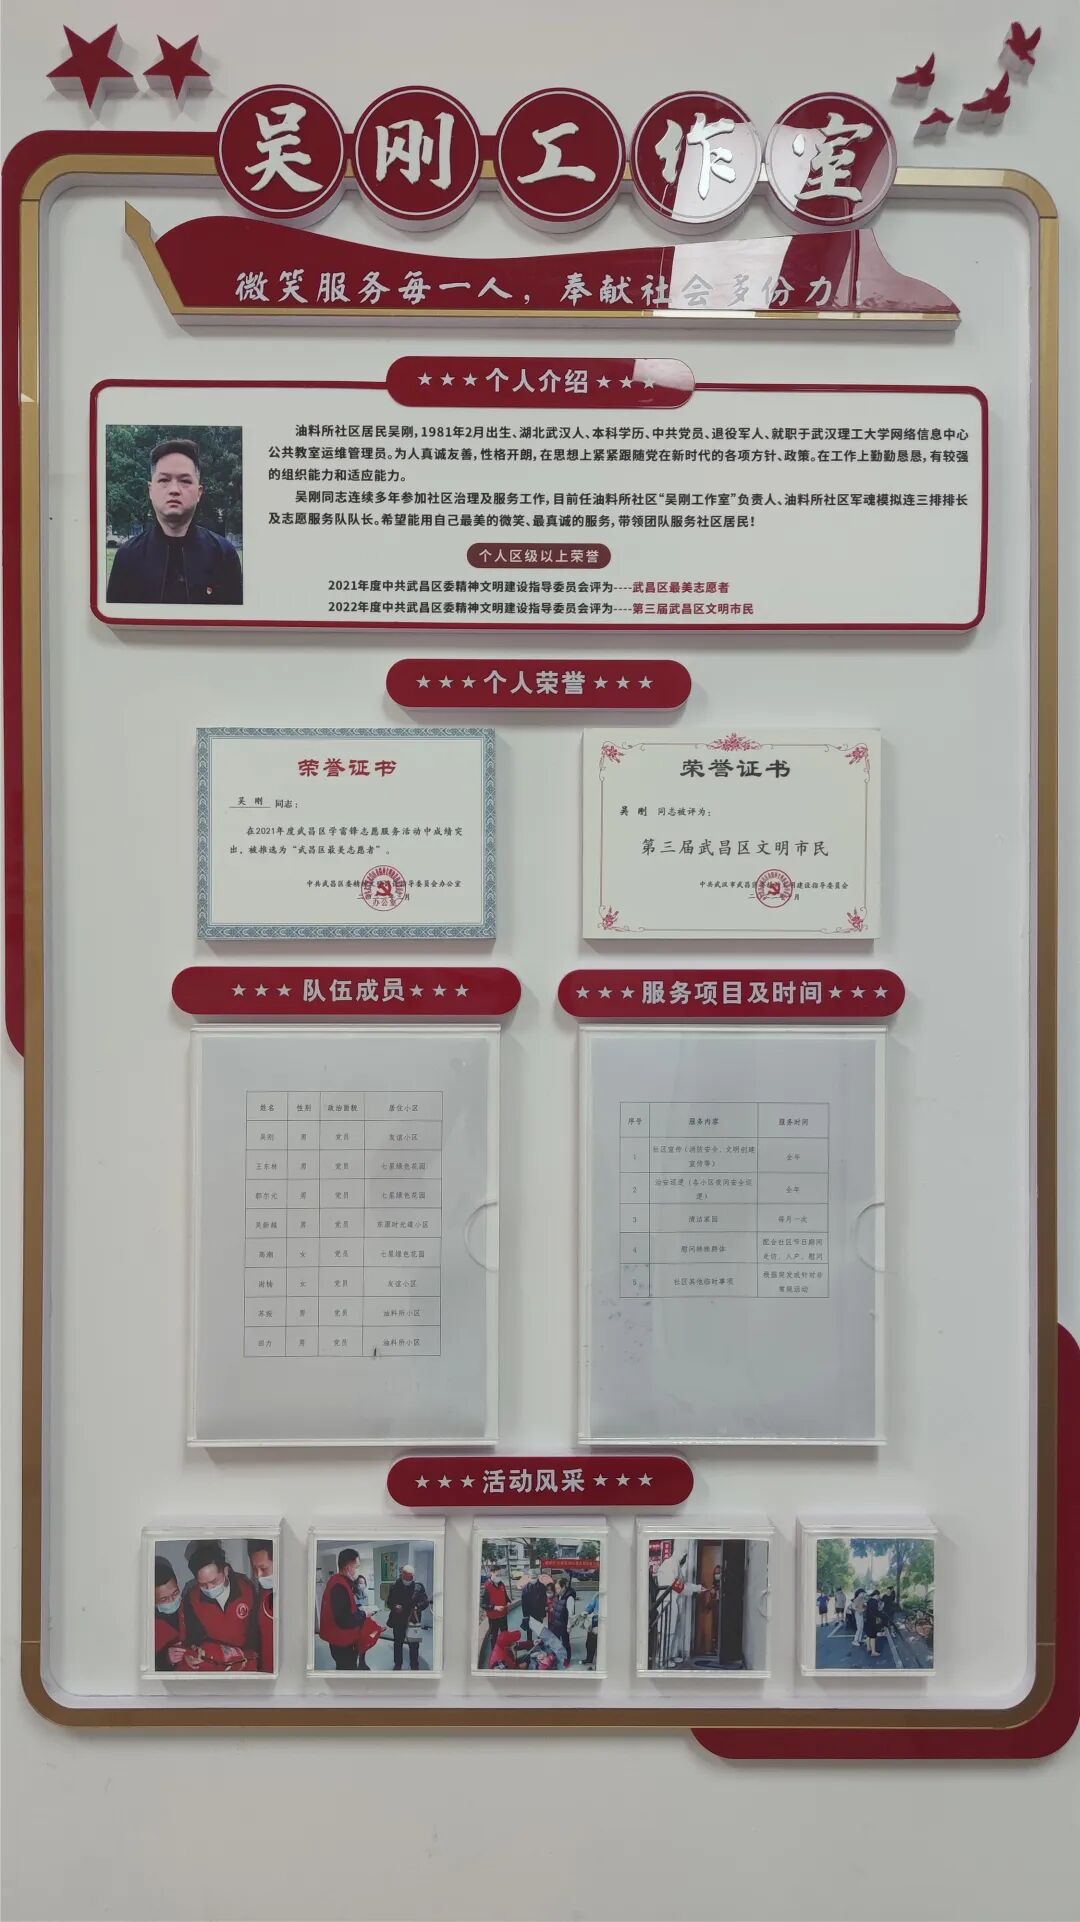 吴刚工作室
微笑服务每一人，奉献社会多份力！
★★★个人介绍★★★
油料所社区居民吴刚，1981年2月出生、湖北武汉人、本科学历、中共党员、退役军人、就职于武汉理工大学网络信息中心
公共教室运维管理员。为人真诚友善，性格开朗，在思想上紧紧跟随党在新时代的各项方针、政策。在工作上勤勤恳恳，有较强
的组织能力和适应能力。
吴刚同志连续多年参加社区治理及服务工作，目前任油料所社区“吴刚工作室”负责人、油料所社区军魂模拟连三排排长
及志愿服务队队长。希望能用自己最美的微笑、最真诚的服务，带领团队服务社区居民！
个人区级以上荣誉
2021年度中共武昌区委精神文明建设指导委员会评为----武昌区最美志愿者
2022年度中共武昌区委精神文明建设指导委员会评为----第三届武昌区文明市民
★★★个人荣誉★★★
荣誉证书
吴 刚 同志：
在2021年度武昌区学雷锋志愿服务活动中成绩突
出，被推选为“武昌区最美志愿者”。
中共武昌区委精神文明建设指导委员会办公室
办公室
荣誉证书
吴 刚 同志被评为：
第三届武昌区文明市民
中共武汉市武昌区委精神文明建设指导委员会
★★★队伍成员★★★
姓名 性别 政治面貌 居住小区
吴刚 男 党员 友谊小区
王东林 男 党员 七星绿色花园
郭尔元 男 党员 七星绿色花园
吴新越 男 党员 东原时光道小区
高潮 女 党员 七星绿色花园
谢楠 女 党员 友谊小区
苏振 男 党员 油料所小区
田力 男 党员 油料所小区
★★★服务项目及时间★★★
序号 服务内容 服务时间
1 社区宣传（消防安全、文明创建宣传等） 全年
2 治安巡逻（各小区夜间安全巡逻） 全年
3 清洁家园 每月一次
4 慰问特殊群体 配合社区节日期间走访、入户、慰问
5 社区其他临时事项 根据突发或针对非常规活动
★★★活动风采★★★